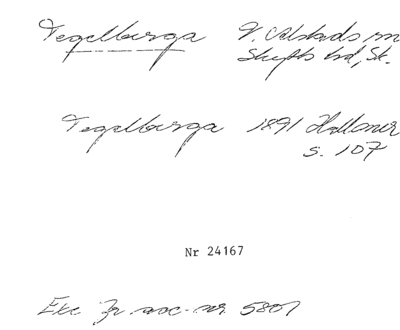 Tegelberga V. Alstads sn
Skytts hd, Sk.
Tegelberga 1891 Halloner
s. 107
Nr 24167
Exc. fr. acc. nr. 5801